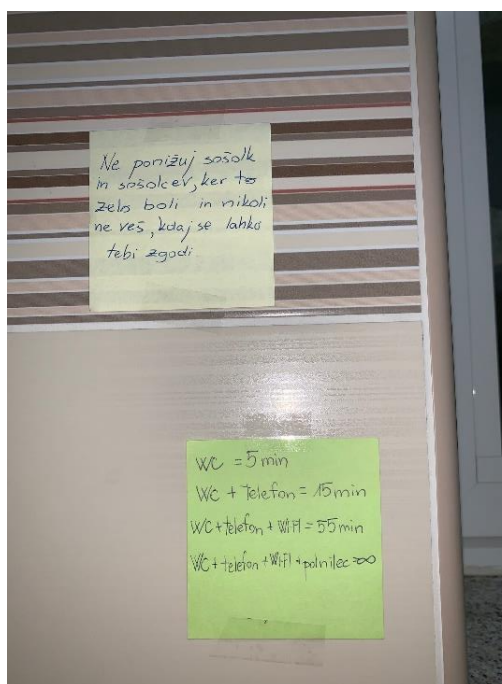 Ne ponižuj sošolk
in sošolcev, ker to
zelo boli in nikoli
ne veš, kdaj se lahko
tebi zgodi
WC = 5 min
WC + Telefon = 15 min
WC + telefon + WIFI = 55 min
WC + telefon + WI-FI + polnilec = ∞